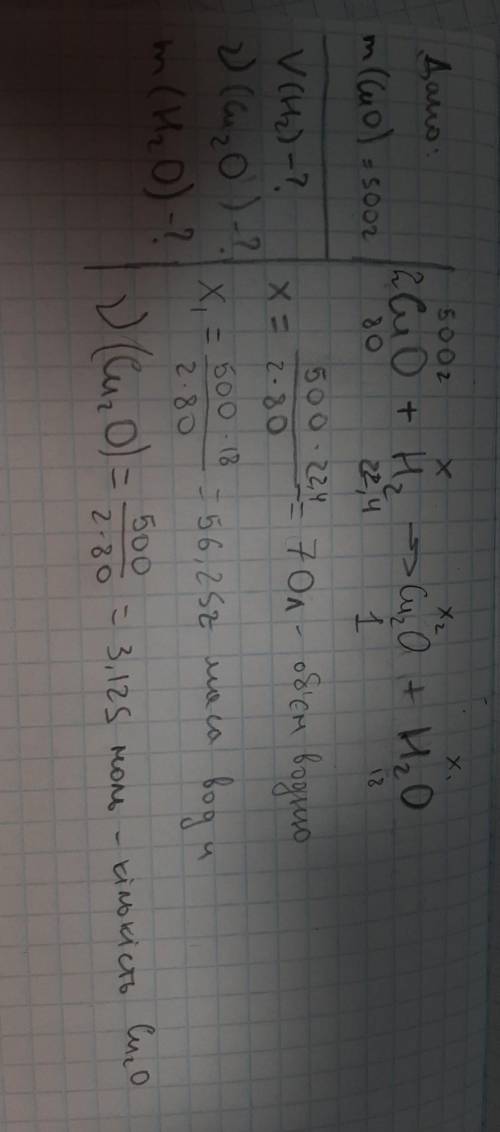 Дано:
m(CuO) = 500г
V(H₂) - ?
ν(Cu₂O) - ?
m(H₂O) - ?
500г x x₂ x₁
2CuO + H₂ → Cu₂O + H₂O
80 22,4 1 18
x = 500 · 22,4 / 2·80 = 70л - обʼєм водню
x₁ = 500 · 18 / 2·80 = 56,25г маса води
ν(Cu₂O) = 500 / 2·80 = 3,125 моль - кількість Cu₂O